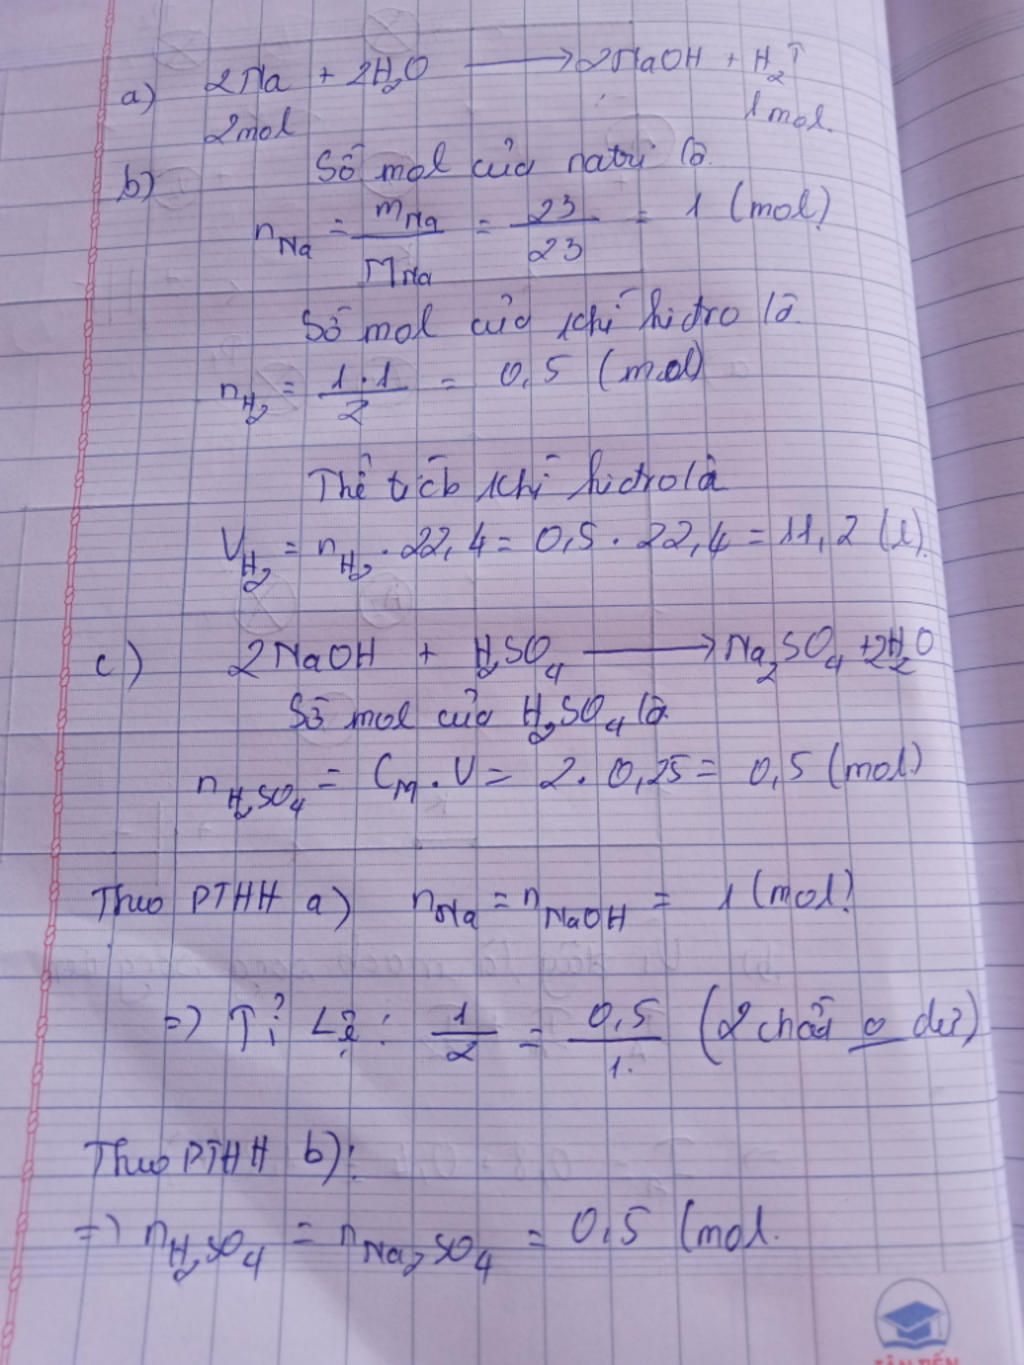 a) 2Na + 2H₂O ⟶ 2NaOH + H₂↑
2mol 1mol.
b) Số mol của natri là
nNa = mNa/MNa = 23/23 = 1 (mol)
Số mol của khí hiđro là
nH₂ = 1.1/2 = 0,5 (mol)
Thể tích khí hiđro là
VH₂ = nH₂ . 22,4 = 0,5 . 22,4 = 11,2 (l).
c) 2NaOH + H₂SO₄ ⟶ Na₂SO₄ + 2H₂O
Số mol của H₂SO₄ là
nH₂SO₄ = CM . V = 2 . 0,25 = 0,5 (mol)
Theo PTHH a) nNa = nNaOH = 1 (mol)
=> Tỉ Lệ : 1/2 = 0,5/1. (2 chất o dư)
Theo PTHH b):
=> nH₂SO₄ = nNa₂SO₄ = 0,5 (mol.